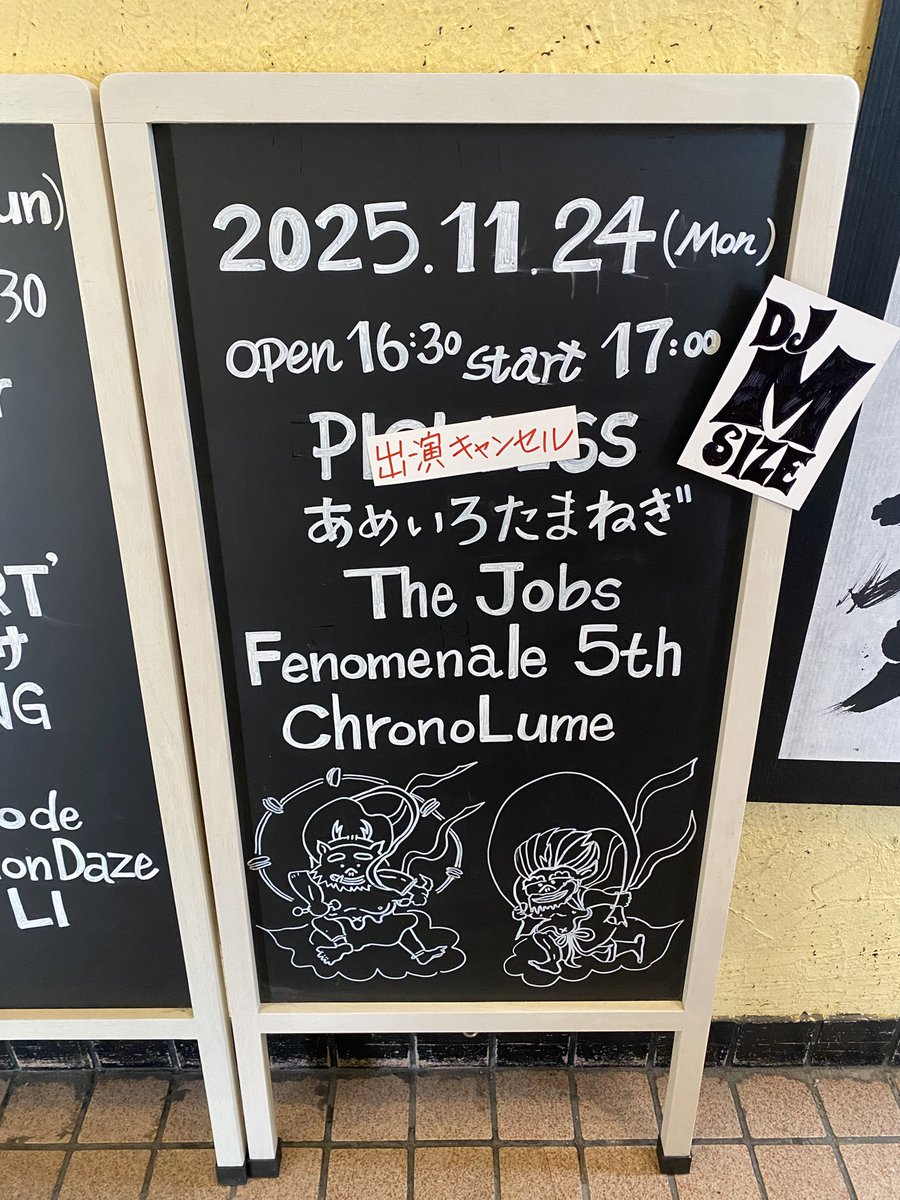 un)
30
RT'
サ
NG
ode
ionDaze
LI
2025.11.24 (Mon)
open 16:30 start 17:00
出演キャンセル
あめいろたまねぎ"
The Jobs
Fenomenale 5th
ChronoLume
DJ
M
SIZE